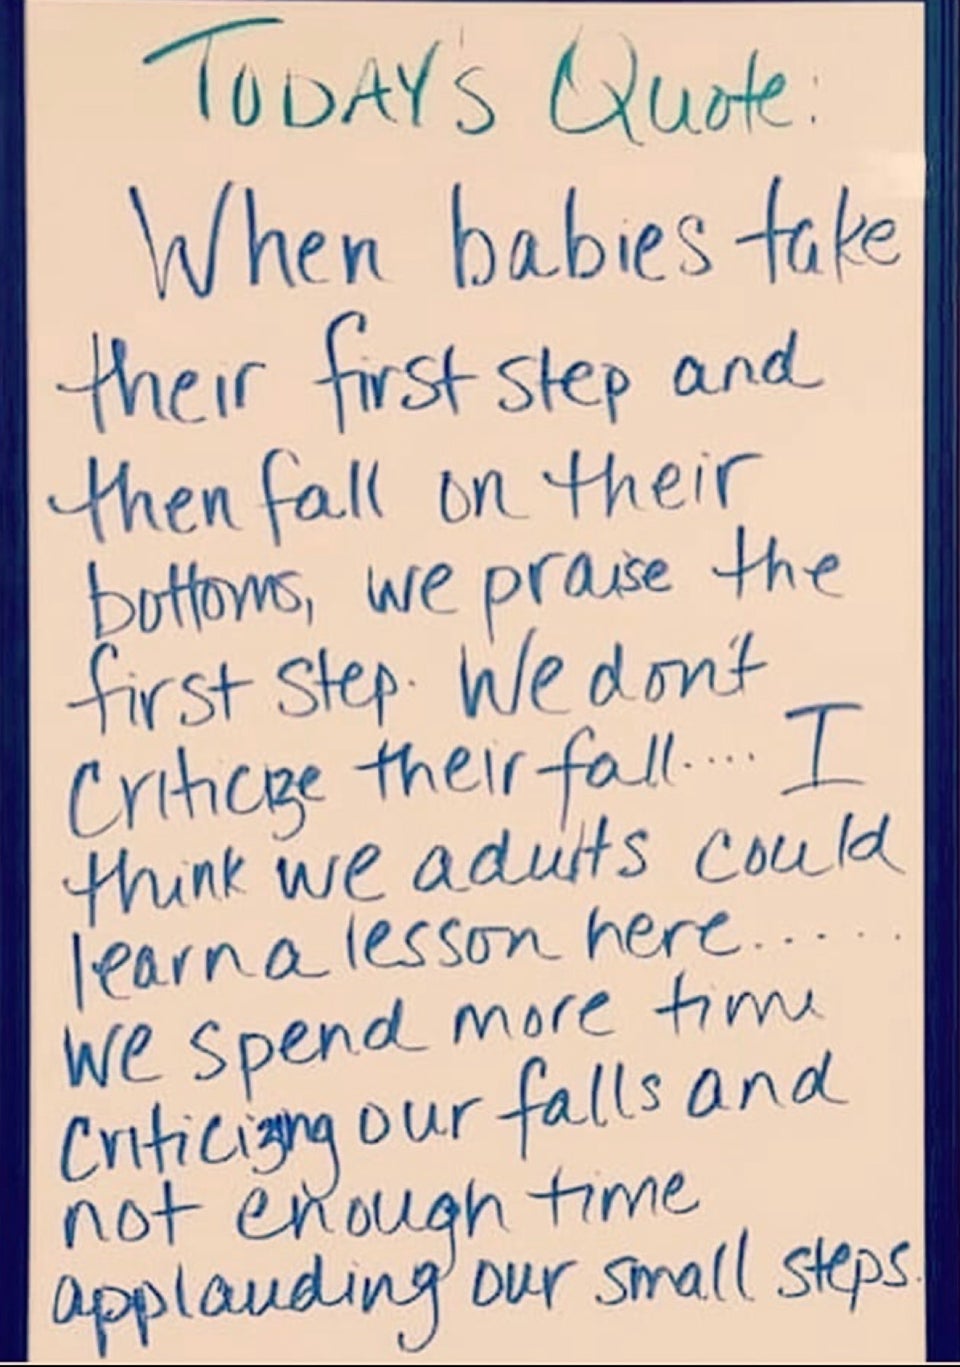 TODAY'S Quote:
When babies take
their first step and
then fall on their
bottoms, we praise the
first step. We don't
criticize their fall.... I
think we adults could
learn a lesson here.....
we spend more time
criticizing our falls and
not enough time
applauding our small steps.